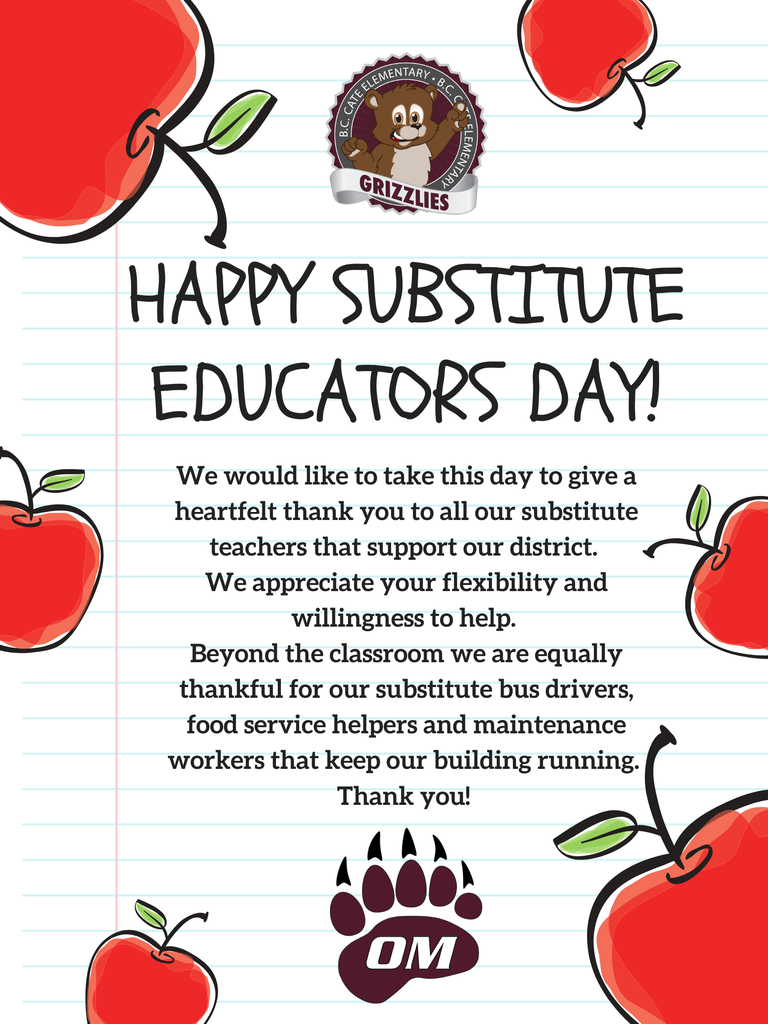 B.C. CATE ELEMENTARY • B.C. CATE ELEMENTARY
GRIZZLIES
HAPPY SUBSTITUTE
EDUCATORS DAY!
We would like to take this day to give a
heartfelt thank you to all our substitute
teachers that support our district.
We appreciate your flexibility and
willingness to help.
Beyond the classroom we are equally
thankful for our substitute bus drivers,
food service helpers and maintenance
workers that keep our building running.
Thank you!
OM